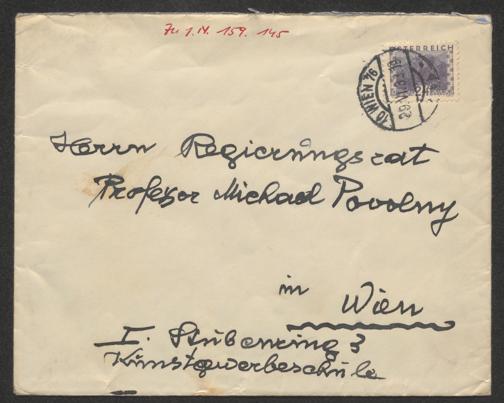 Zu I.N. 159.145
ÖSTERREICH
WIEN 76
Herrn Regierungsrat
Professor Michael Povolny
in Wien
I. Stubenring 3
Kunstgewerbeschule